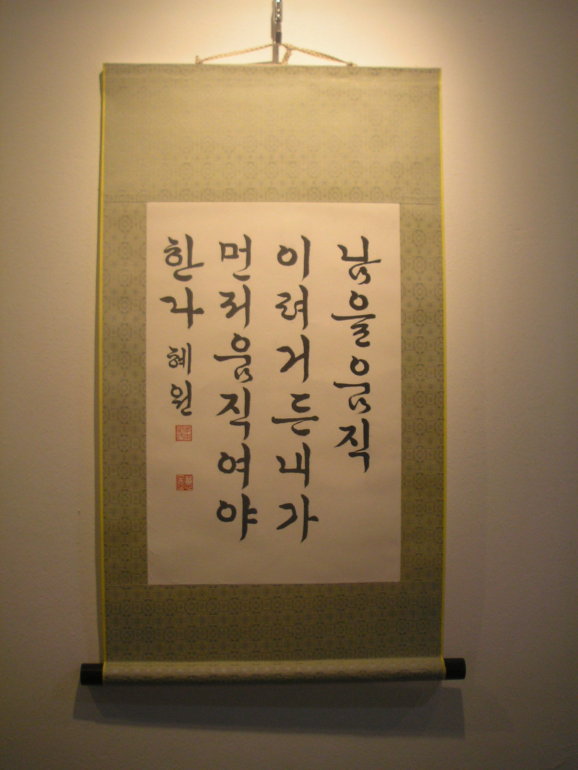 남을움직
이려거든내가
먼저움직여야
한다 혜원